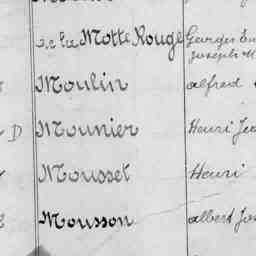 de la Motte Rouge Georges
Joseph M
Moulin alfred
D Mounier Henri
Mousset Henri
Mousson albert